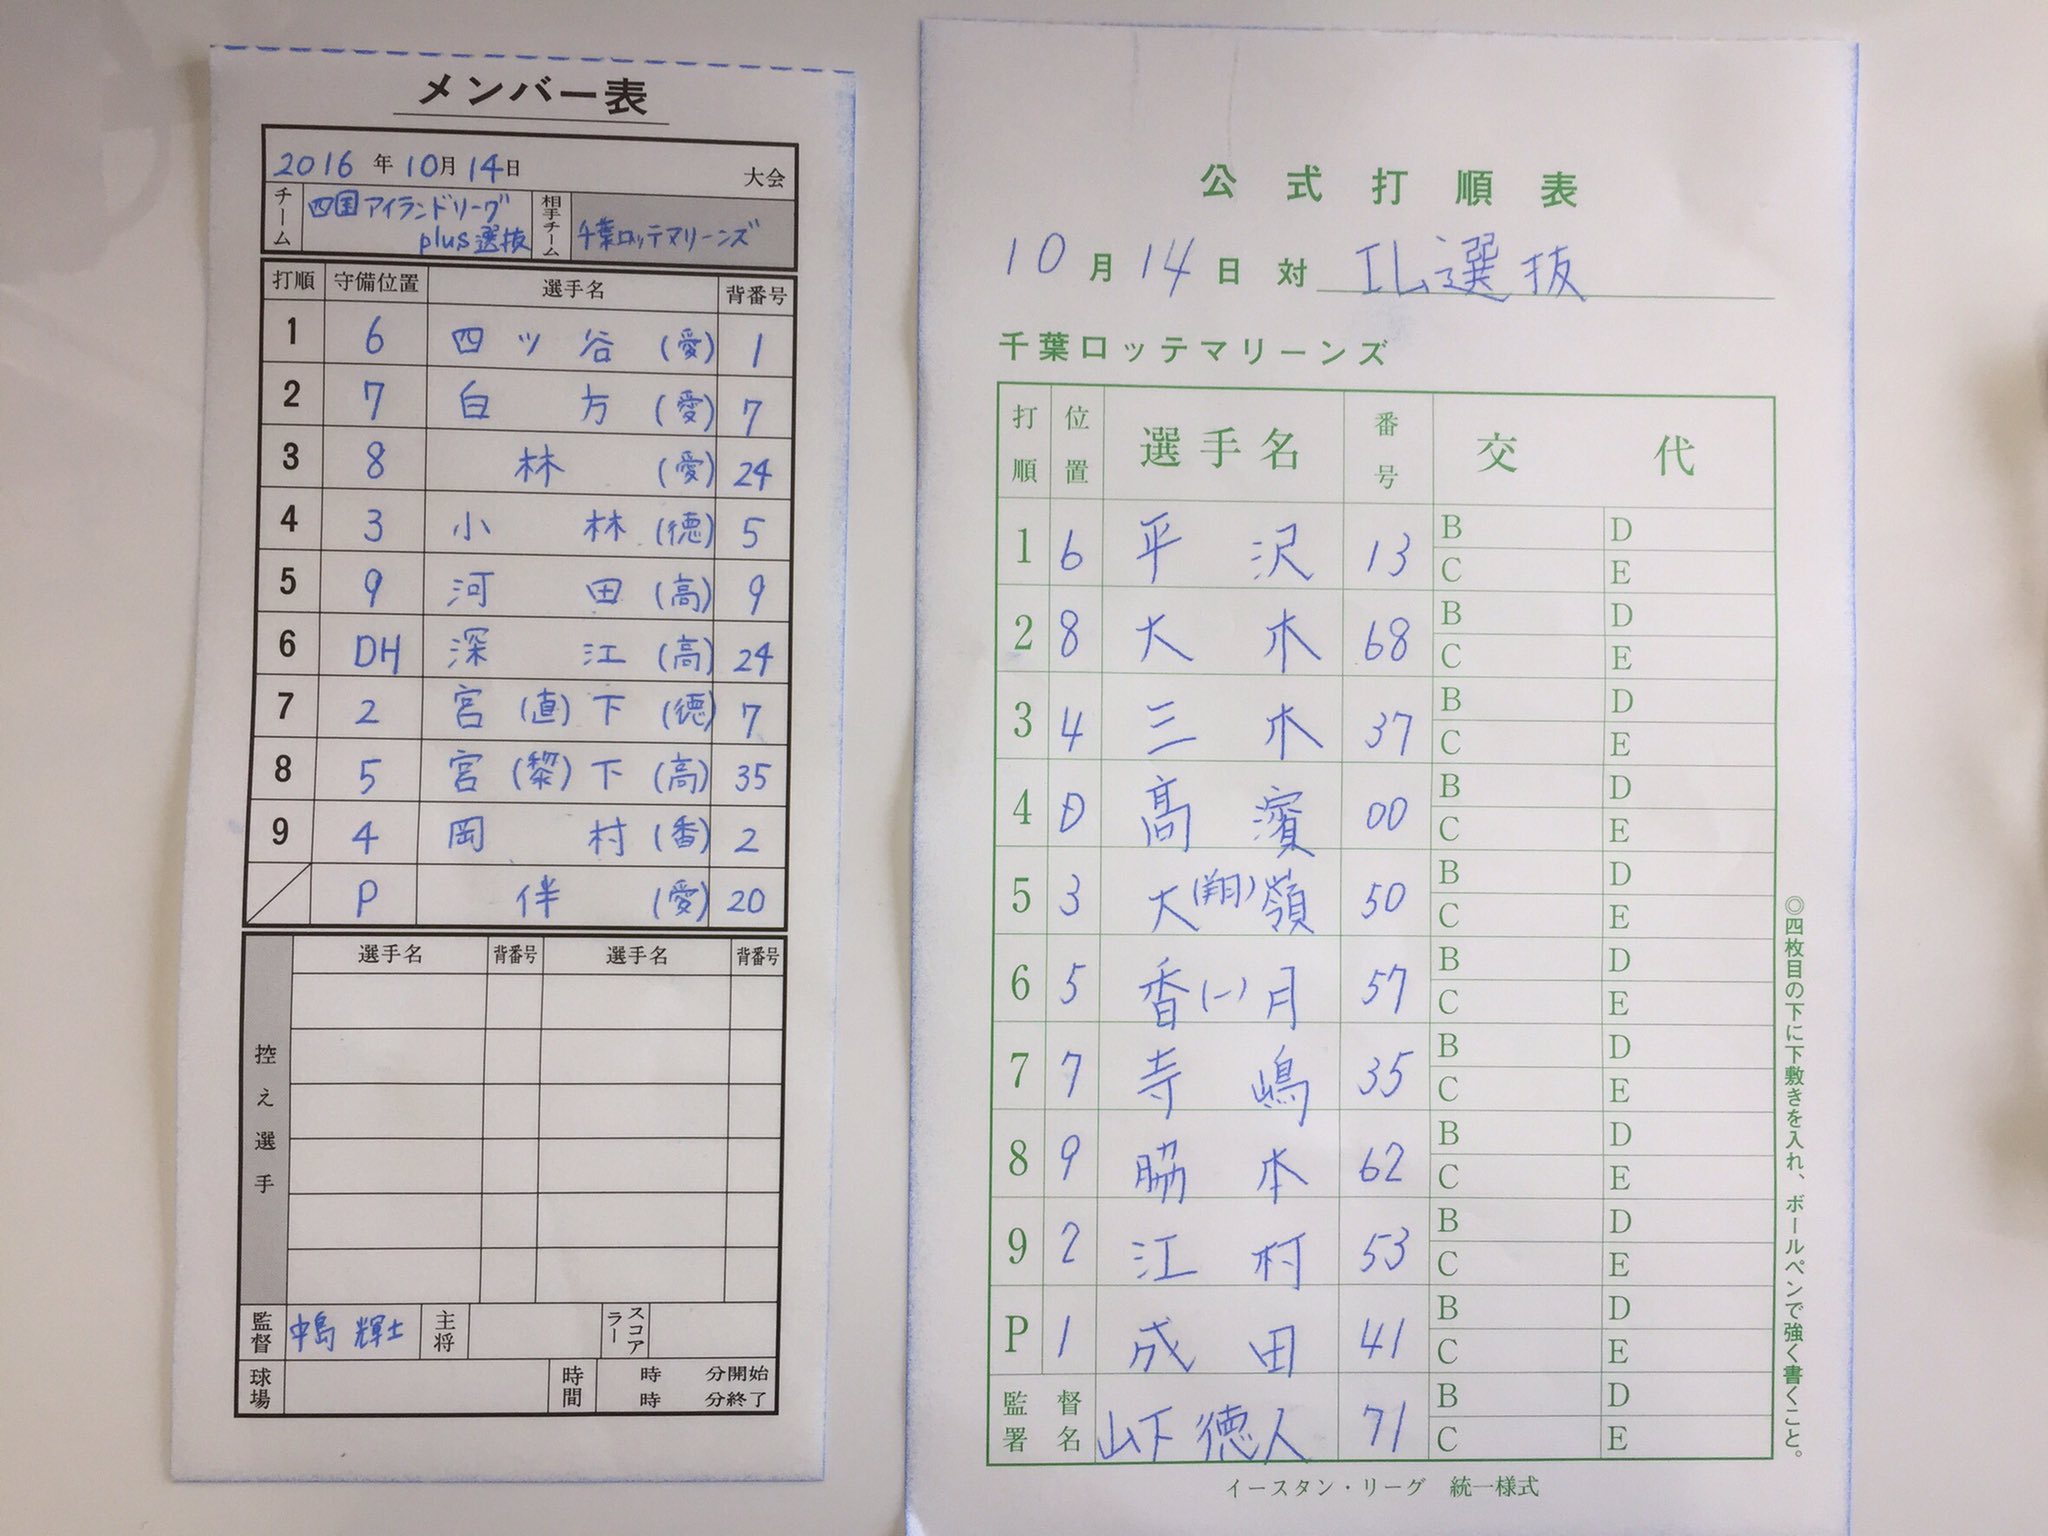 メンバー表
2016年10月14日 大会
チーム 四国アイランドリーグ plus選抜 相手チーム 千葉ロッテマリーンズ
打順 守備位置 選手名 背番号
1 6 四ッ谷(愛) 1
2 7 白方(愛) 7
3 8 林(愛) 24
4 3 小林(徳) 5
5 9 河田(高) 9
6 DH 深江(高) 24
7 2 宮(直)下(徳) 7
8 5 宮(黎)下(高) 35
9 4 岡村(香) 2
P 伴(愛) 20
控え選手 選手名 背番号 選手名 背番号
監督 中島輝士 主将 スコアラー
球場 時間 時 分開始
時 分終了
公式打順表
10月14日対 IL選抜
千葉ロッテマリーンズ
打順 位置 選手名 番号 交代
1 6 平沢 13 B D
C E
2 8 大木 68 B D
C E
3 4 三木 37 B D
C E
4 D 高濱 00 B D
C E
5 3 大(翔)嶺 50 B D
C E
6 5 香(一)月 57 B D
C E
7 7 寺嶋 35 B D
C E
8 9 脇本 62 B D
C E
9 2 江村 53 B D
C E
P 1 成田 41 B D
C E
監督署名 山下徳人 71 B D
C E
イースタン・リーグ 統一様式
◎四枚目の下に下敷きを入れ、ボールペンで強く書くこと。